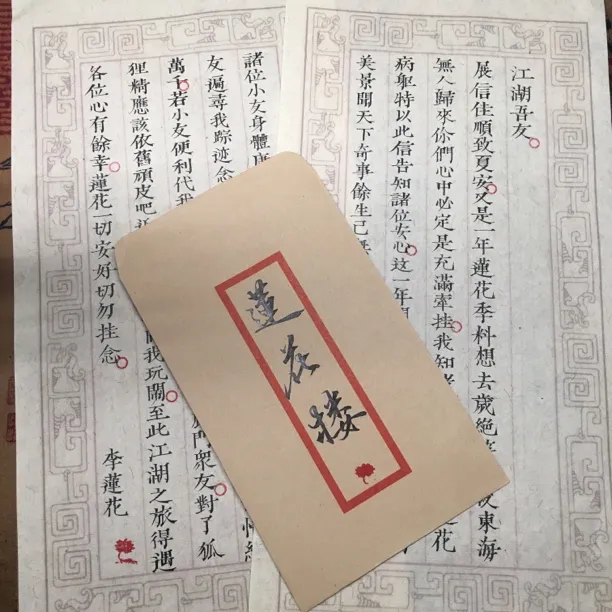 江湖吾友
展信佳順致夏安又是一年蓮花季料想去歲絕筆
東海
無人歸來你們心中必定是充滿牽挂我知
花
病軀特以此信告知諸位安心这一年
美景聞天下奇事餘生已
諸位小友身體康
友遍尋我踪迹念
門衆友對了狐
萬千若小友便利代我
狸精應該依舊頑皮吧
我玩鬧至此江湖之旅得遇
各位心有餘幸蓮花一切安好切勿挂念
李蓮花
蓮花楼